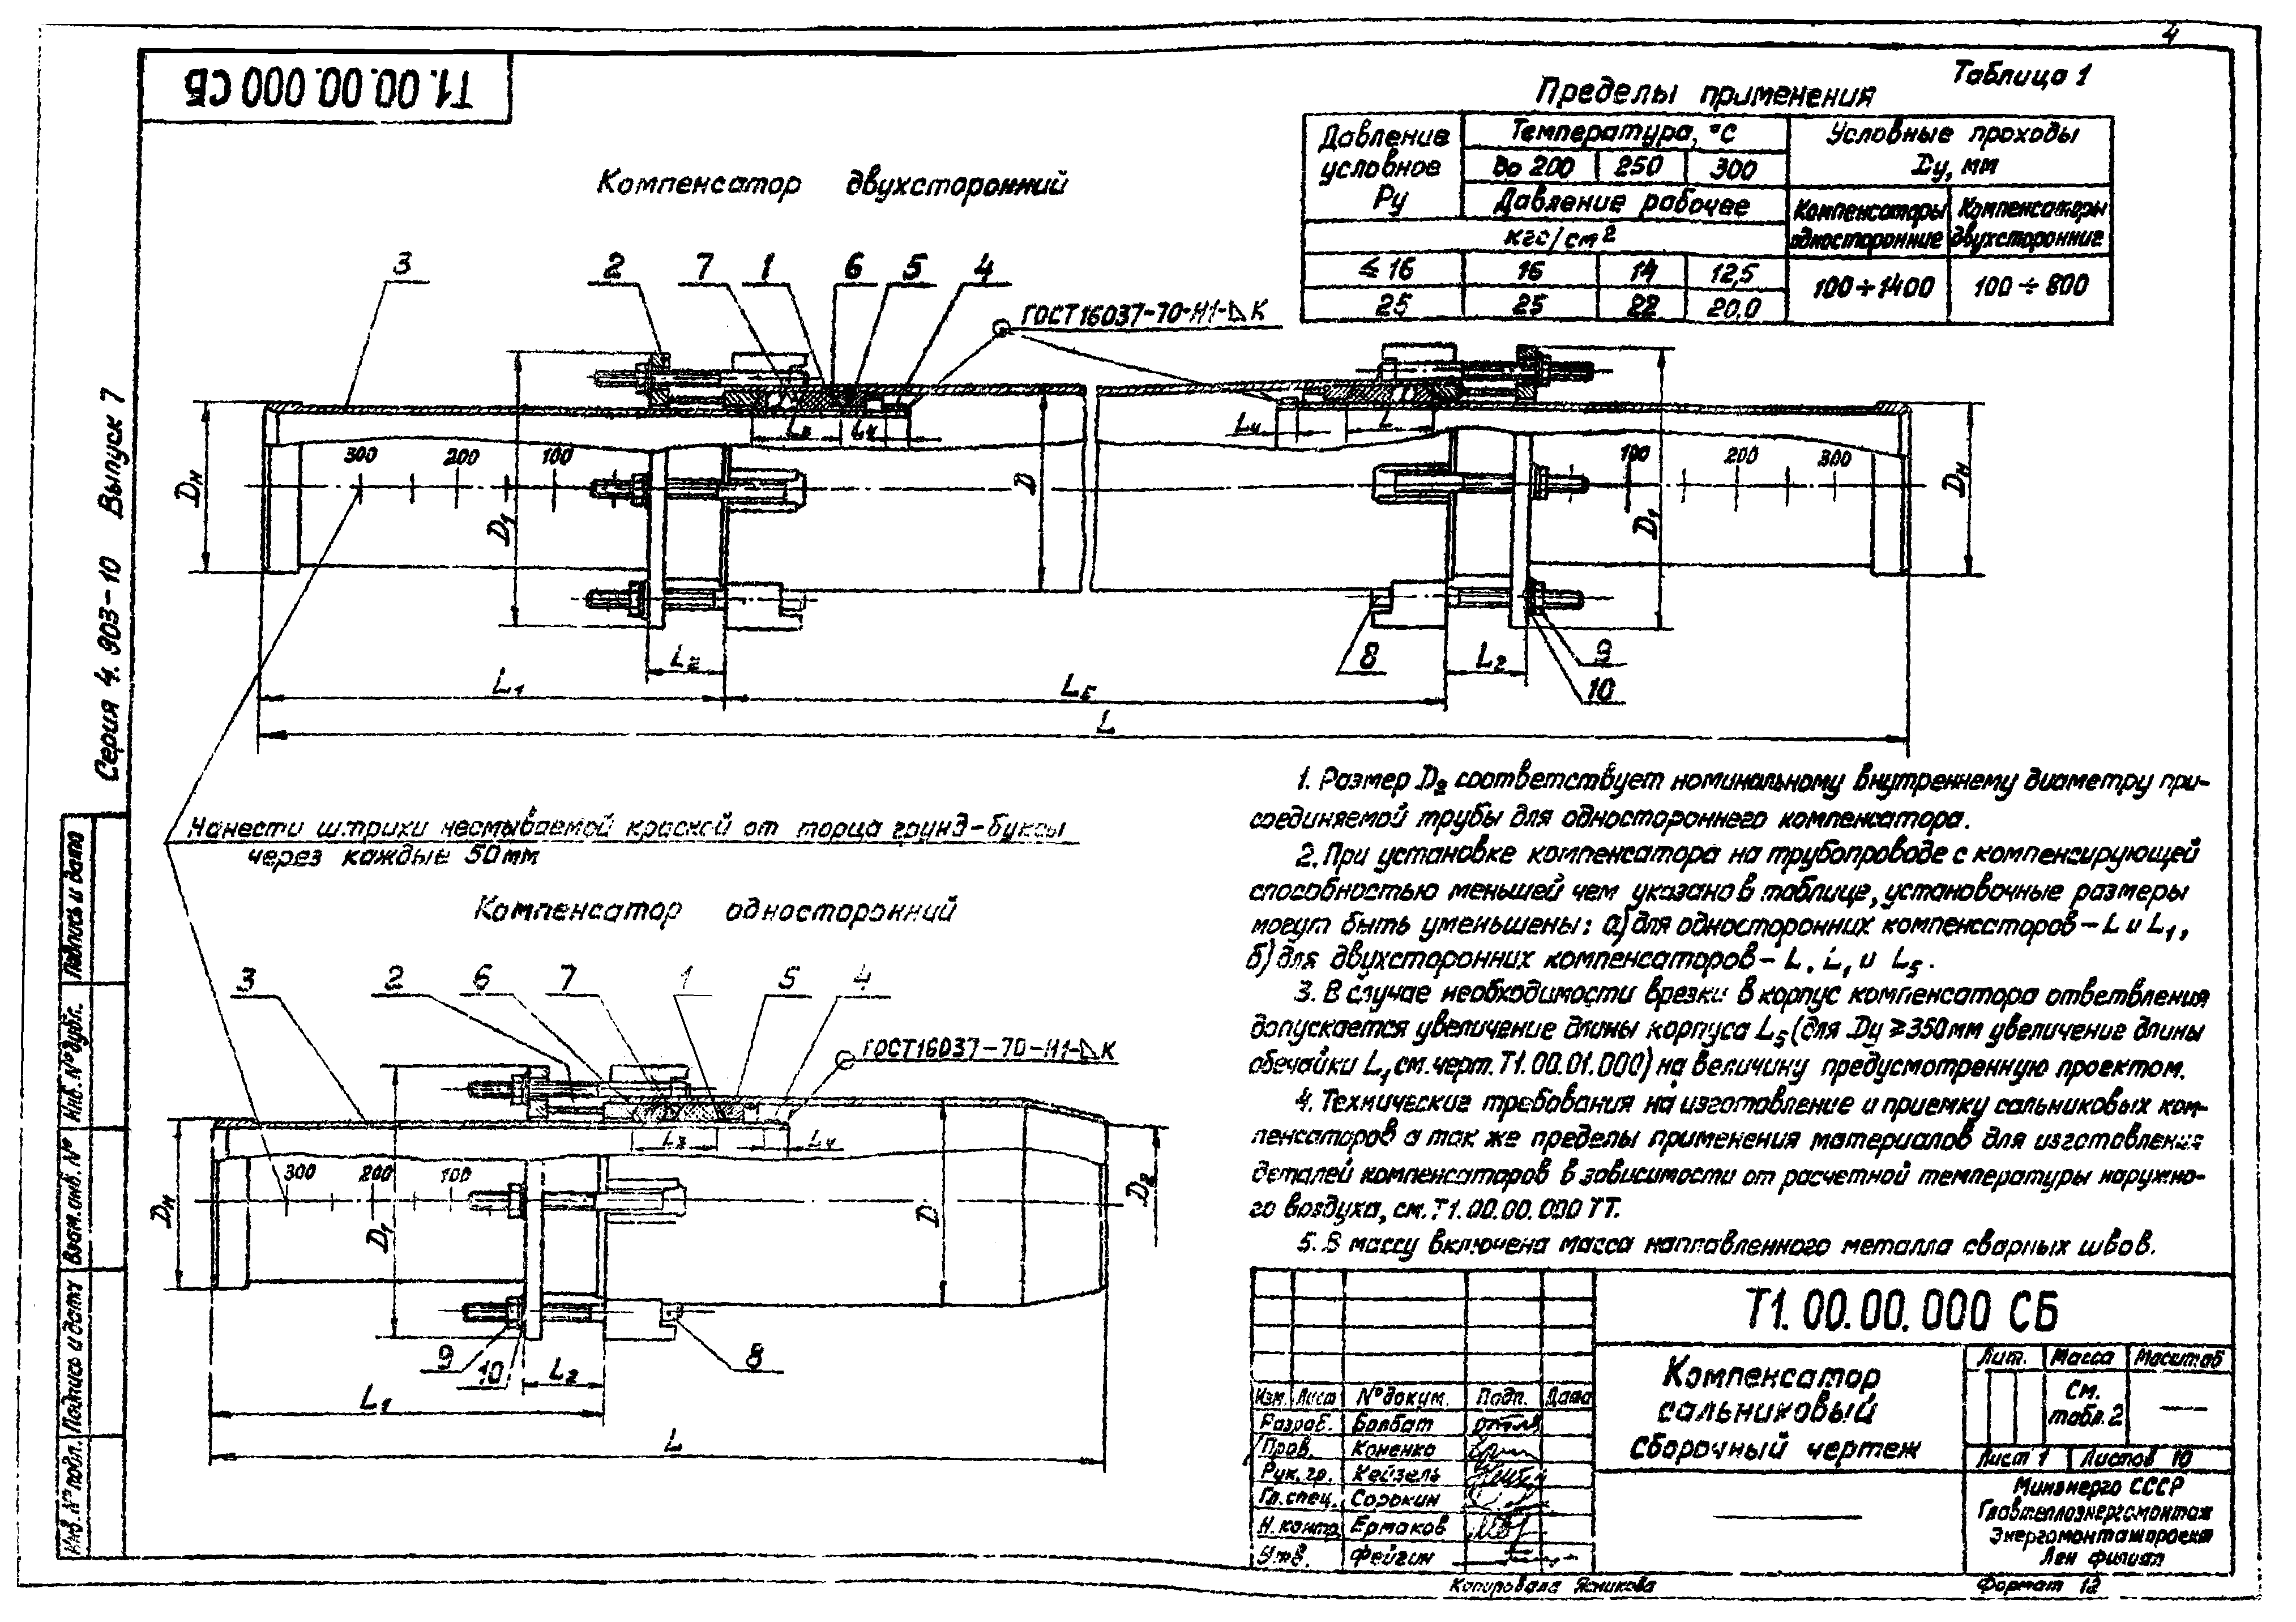 4
Т1.00.00.000 СБ
Серия 4.903-10 Выпуск 7
Таблица 1
Пределы применения
Давление условное Ру
Температура, °С
Условные проходы Dу, мм
до 200
250
300
Давление рабочее
Компенсаторы односторонние
Компенсаторы двухсторонние
кгс/см2
≤ 16
16
14
12,5
100÷1400
100÷800
25
25
22
20,0
Компенсатор двухсторонний
3
2
7
1
6
5
4
ГОСТ16037-70-Н1-◺К
L4
L4
300
200
100
100
200
300
Dн
D1
D
D1
Dн
8
9
10
L2
L2
L1
L5
L
Нанести штрихи несмываемой краской от торца грунд-буксы
через каждые 50мм
Компенсатор односторонний
3
2
6
7
1
5
4
ГОСТ16037-70-Н1-◺К
L3
L4
300
200
100
Dн
D1
D
D2
9
10
8
L2
L1
L
1. Размер D2 соответствует номинальному внутреннему диаметру при-
соединяемой трубы для одностороннего компенсатора.
2. При установке компенсатора на трубопроводе с компенсирующей
способностью меньшей чем указано в таблице, установочные размеры
могут быть уменьшены: а) для односторонних компенсаторов – L и L1,
б) для двухсторонних компенсаторов – L, L1 и L5.
3. В случае необходимости врезки в корпус компенсатора ответвления
допускается увеличение длины корпуса L5 (для Dу ≥ 350мм увеличение длины
обечайки L1 см. черт. Т1.00.01.000) на величину предусмотренную проектом.
4. Технические требования на изготовление и приемку сальниковых ком-
пенсаторов а так же пределы применения материалов для изготовления
деталей компенсаторов в зависимости от расчетной температуры наружно-
го воздуха, см. Т1.00.00.000 ТТ.
5. В массу включена масса наплавленного металла сварных швов.
Подпись и дата
Инв. № дубл.
Взам. инв. №
Подпись и дата
Инв. № подл.
Т1.00.00.000 СБ
Компенсатор
сальниковый
сборочный чертеж
Лит.
Масса
Масштаб
См. табл. 2
Лист 1
Листов 10
Минэнерго СССР
Главтеплоэнергомонтаж
Энергомонтажпроект
Лен филиал
Изм. Лист № докум. Подп. Дата
Разраб. Болбат
Пров. Коненко
Рук. гр. Кейзель
Гл. спец. Сорокин
Н. контр. Ермаков
Утв. Фейгин
Копировала Ясникова
Формат 12